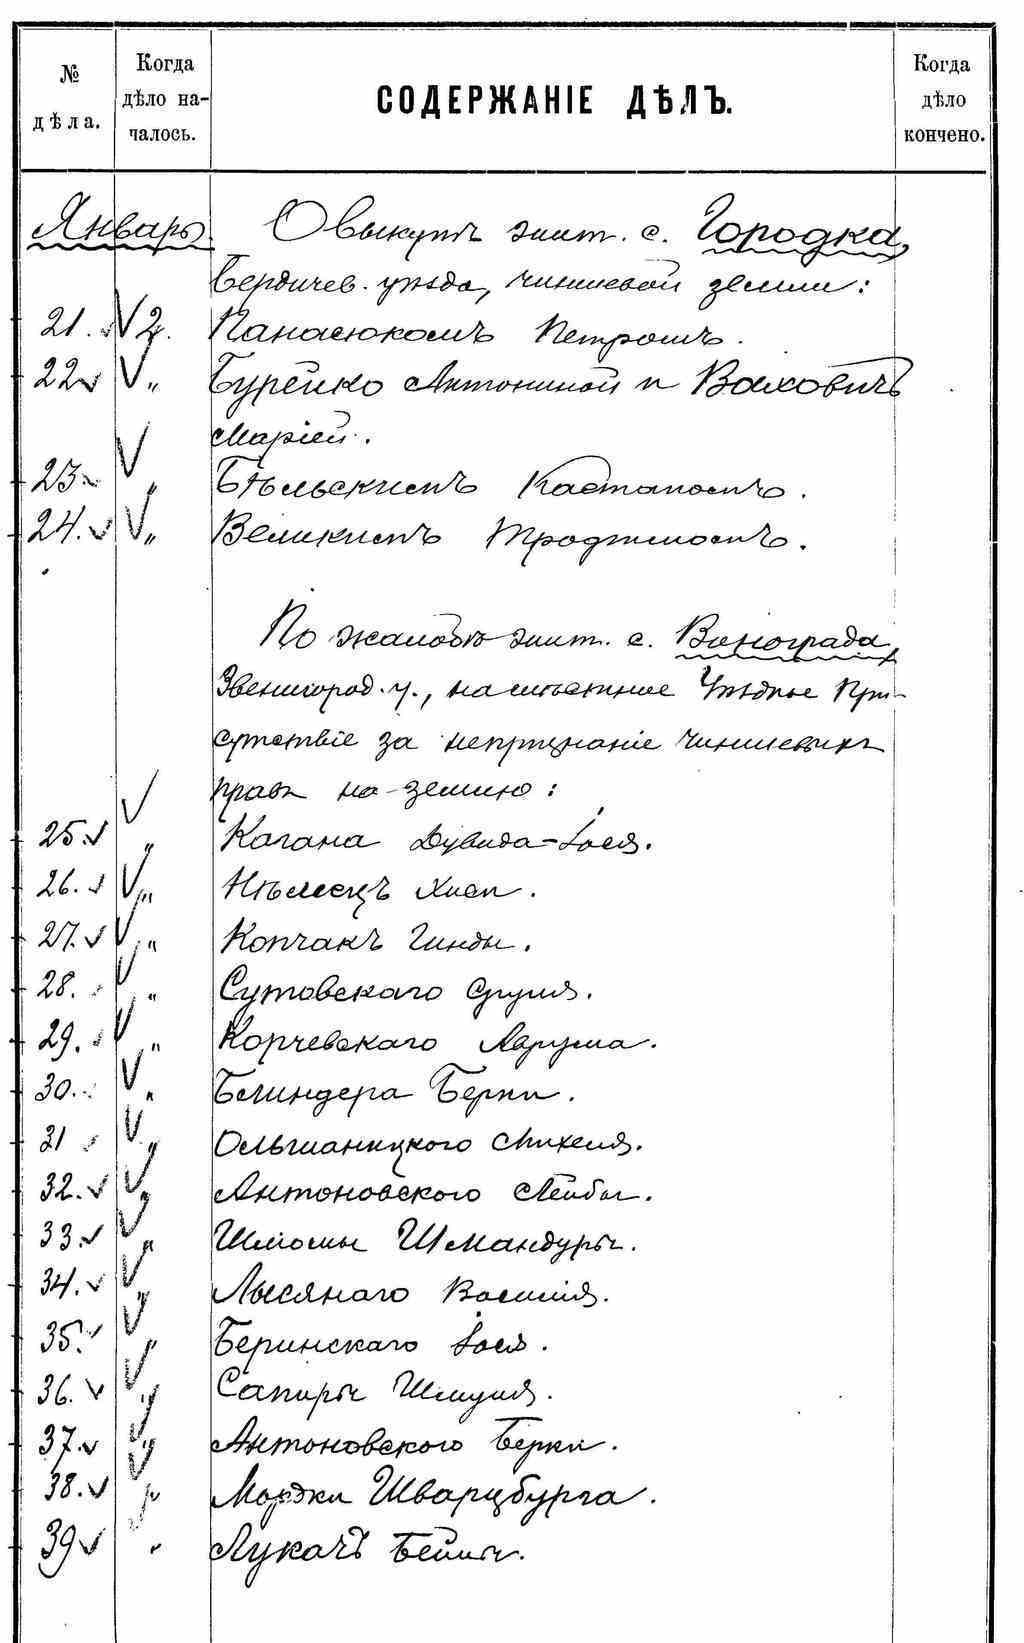 № дѣла.
Когда дѣло на-
чалось.
СОДЕРЖАНІЕ ДѢЛЪ.
Когда
дѣло
кончено.
Январь
О выкупѣ жит. с. Городка,
Бердичев. уѣзда, чиншевой земли:
21. 2. Панасюкомъ Петромъ.
22 „ Бурейко Антониной и Ваховичъ
Маріей.
23 „ Бѣльскимъ Каетаномъ.
24. „ Великимъ Трофимомъ.
По жалобѣ жит. с. Винограда,
Звенигород. у., на мѣстное Уѣздное При-
сутствіе за непризнаніе чиншевыхъ
правъ на землю:
25. „ Кагана Дувида-Іося.
26. „ Нѣмецъ Хаи.
27. „ Копчакъ Гинды.
28. „ Сутовскаго Сруля.
29. „ Корчевскаго Аврума.
30. „ Блиндера Берки.
31 „ Ольшаницкого Михеля.
32. „ Антоновского Лейбы.
33. „ Шлиомы Шмандуры.
34. „ Лысянаго Василія.
35. „ Беринскаго Іося.
36. „ Сапиры Шмуля.
37. „ Антоновского Берки.
38. „ Мордки Шварцбурга.
39 „ Лукачъ Бейлы.